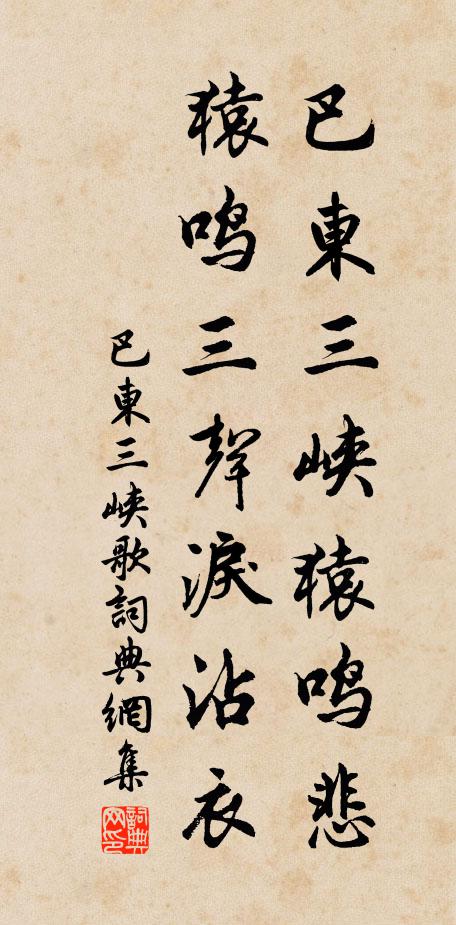 巴東三峽猿鳴悲
猿鳴三聲淚沾衣
巴東三峽歌詞典網集
詞典網印